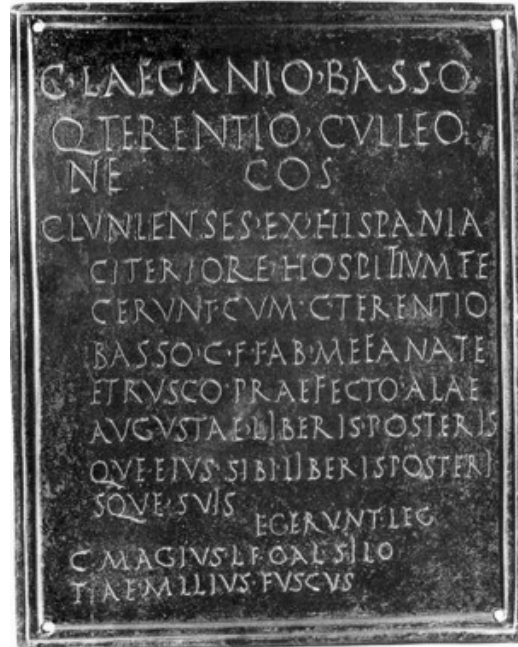 C·LAECANIO·BASSO
Q·TERENTIO·CVLLEO
NE COS
CLVNIENSES·EX·HISPANIA
CITERIORE·HOSPITIVM·FE
CERVNT·CVM·C·TERENTIO
BASSO·C·F·FAB·MEFANATE
ETRVSCO·PRAEFECTO·ALAE
AVGVSTAE·LIBERIS·POSTERIS
QVE·EIVS·SIBI·LIBERIS·POSTERI
SQVE·SVIS
EGERVNT·LEG
C MAGIVS·L·F·GAL·SILO
T·AEMILIVS·FVSCVS